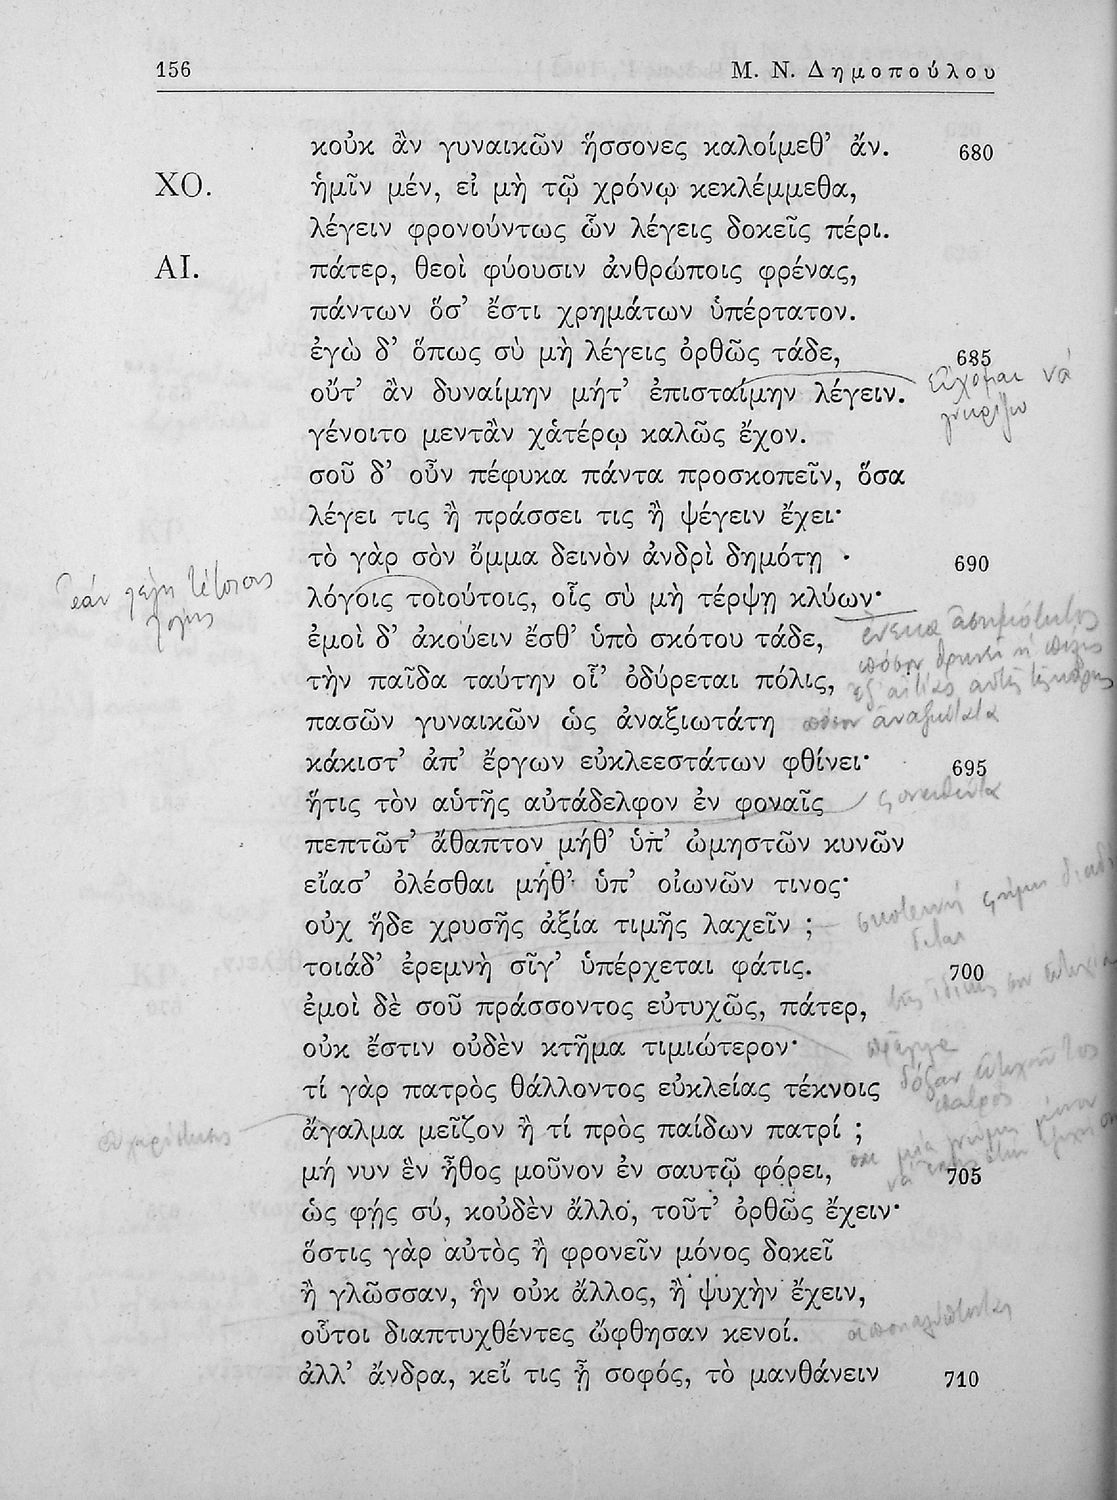 156 Μ. Ν. Δημοπούλου
κοὐκ ἂν γυναικῶν ἥσσονες καλοίμεθ' ἄν. 680
ΧΟ. ἡμῖν μέν, εἰ μὴ τῷ χρόνῳ κεκλέμμεθα,
λέγειν φρονούντως ὧν λέγεις δοκεῖς πέρι.
ΑΙ. πάτερ, θεοὶ φύουσιν ἀνθρώποις φρένας,
πάντων ὅσ' ἔστι χρημάτων ὑπέρτατον.
ἐγὼ δ' ὅπως σὺ μὴ λέγεις ὀρθῶς τάδε, 685
οὔτ' ἂν δυναίμην μήτ' ἐπισταίμην λέγειν. εὔχομαι νὰ
γνωρίζω
γένοιτο μεντἂν χἀτέρῳ καλῶς ἔχον.
σοῦ δ' οὖν πέφυκα πάντα προσκοπεῖν, ὅσα
λέγει τις ἢ πράσσει τις ἢ ψέγειν ἔχει·
τὸ γὰρ σὸν ὄμμα δεινὸν ἀνδρὶ δημότῃ 690
λόγοις τοιούτοις, οἷς σὺ μὴ τέρψῃ κλύων·
ἐμοὶ δ' ἀκούειν ἔσθ' ὑπὸ σκότου τάδε,
τὴν παῖδα ταύτην οἷ' ὀδύρεται πόλις,
πασῶν γυναικῶν ὡς ἀναξιωτάτη
κάκιστ' ἀπ' ἔργων εὐκλεεστάτων φθίνει· 695
ἥτις τὸν αὑτῆς αὐτάδελφον ἐν φοναῖς
πεπτῶτ' ἄθαπτον μήθ' ὑπ' ὠμηστῶν κυνῶν
εἴασ' ὀλέσθαι μήθ' ὑπ' οἰωνῶν τινος·
οὐχ ἥδε χρυσῆς ἀξία τιμῆς λαχεῖν ;
τοιάδ' ἐρεμνὴ σῖγ' ὑπέρχεται φάτις. 700
ἐμοὶ δὲ σοῦ πράσσοντος εὐτυχῶς, πάτερ,
οὐκ ἔστιν οὐδὲν κτῆμα τιμιώτερον·
τί γὰρ πατρὸς θάλλοντος εὐκλείας τέκνοις
ἄγαλμα μεῖζον ἢ τί πρὸς παίδων πατρί ;
μή νυν ἓν ἦθος μοῦνον ἐν σαυτῷ φόρει, 705
ὡς φῄς σύ, κοὐδὲν ἄλλο, τοῦτ' ὀρθῶς ἔχειν·
ὅστις γὰρ αὐτὸς ἢ φρονεῖν μόνος δοκεῖ
ἢ γλῶσσαν, ἣν οὐκ ἄλλος, ἢ ψυχὴν ἔχειν,
οὗτοι διαπτυχθέντες ὤφθησαν κενοί.
ἀλλ' ἄνδρα, κεἴ τις ᾖ σοφός, τὸ μανθάνειν 710